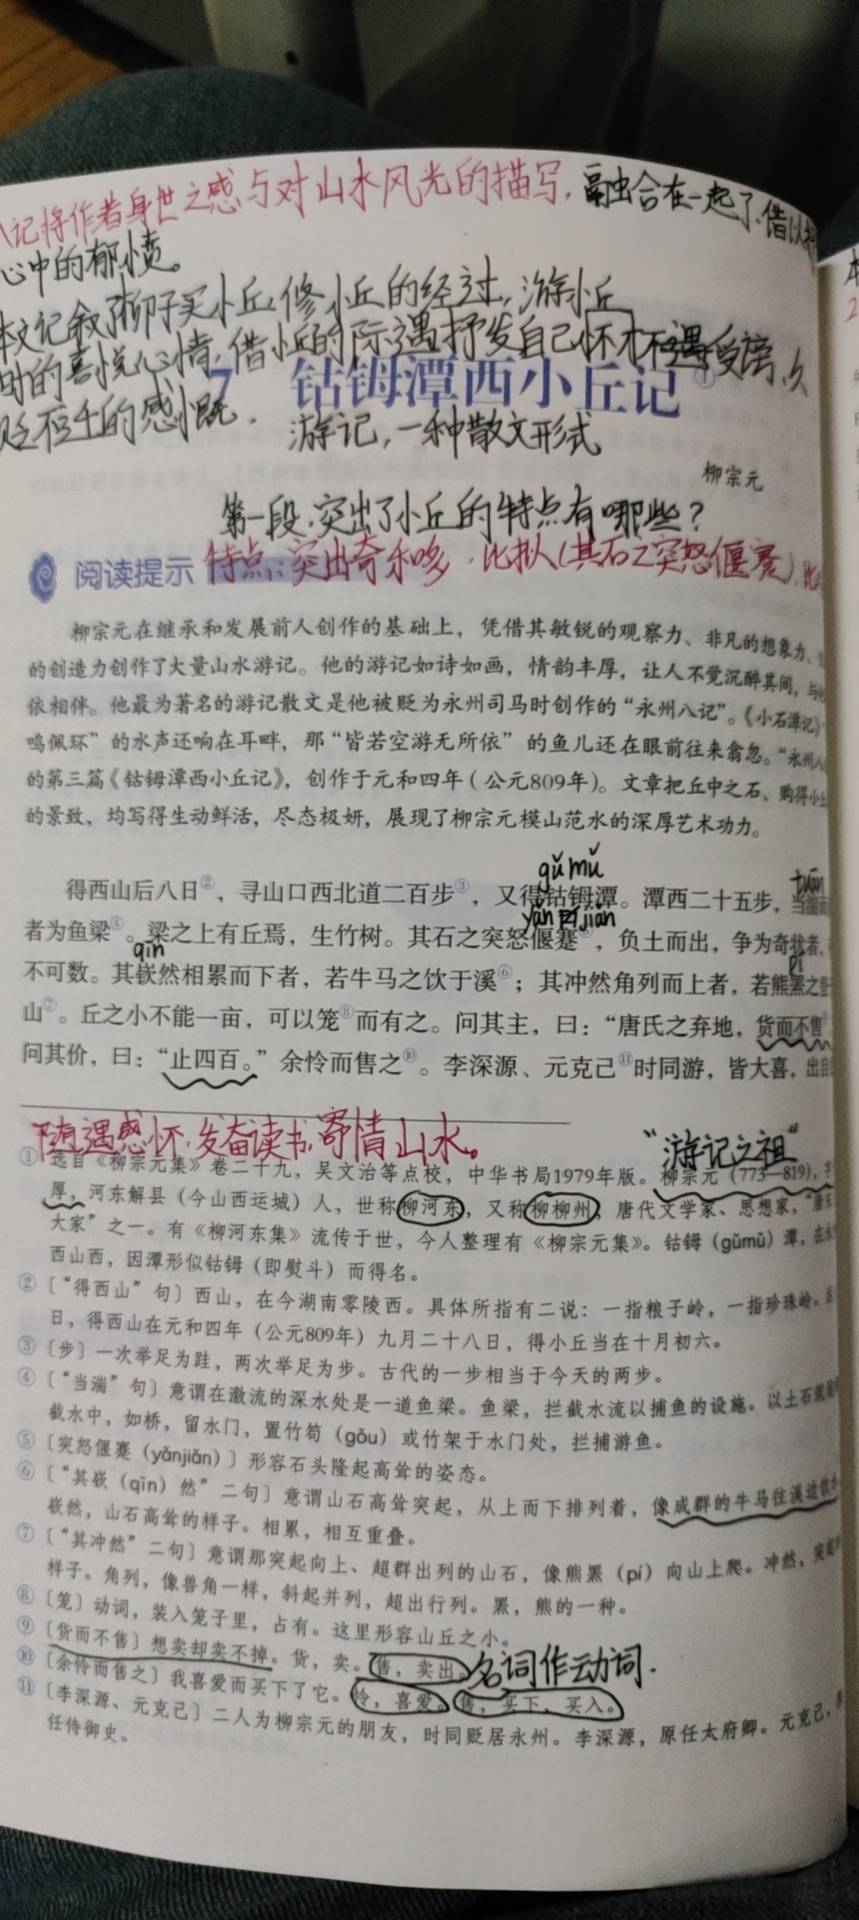 记将作者身世之感与对山水风光的描写,融合在一起了.借以抒
心中的郁愤。
本文记叙了柳子买小丘,修小丘的经过,游小丘
时的喜悦心情,借小丘的际遇抒发自己怀才不遇,受谤,久
贬不迁的感慨.
7 钴鉧潭西小丘记①
游记,一种散文形式
柳宗元
第一段,突出了小丘的特点有哪些?
阅读提示 特点:突出奇和多.比拟(其石之突怒偃蹇)
柳宗元在继承和发展前人创作的基础上,凭借其敏锐的观察力、非凡的想象力、
的创造力创作了大量山水游记。他的游记如诗如画,情韵丰厚,让人不觉沉醉其间,与
依相伴。他最为著名的游记散文是他被贬为永州司马时创作的“永州八记”。《小石潭记》
鸣佩环”的水声还响在耳畔,那“皆若空游无所依”的鱼儿还在眼前往来翕忽。“永州八
的第三篇《钴鉧潭西小丘记》,创作于元和四年(公元809年)。文章把丘中之石、购得小丘
的景致,均写得生动鲜活,尽态极妍,展现了柳宗元模山范水的深厚艺术功力。
gǔ mǔ
得西山后八日②,寻山口西北道二百步③,又得钴鉧潭。潭西二十五步,当湍而
tuān
yǎn jiǎn
者为鱼梁④。梁之上有丘焉,生竹树。其石之突怒偃蹇⑤,负土而出,争为奇状者,
qīn
pí
不可数。其嵚然相累而下者,若牛马之饮于溪⑥;其冲然角列而上者,若熊罴之登
山⑦。丘之小不能一亩,可以笼⑧而有之。问其主,曰:“唐氏之弃地,货而不售
问其价,曰:“止四百。”余怜而售之⑩。李深源、元克己⑪时同游,皆大喜,出自
随遇感怀,发奋读书,寄情山水。
“游记之祖”
① 选自《柳宗元集》卷二十九,吴文治等点校,中华书局1979年版。柳宗元(773—819),字
厚,河东解县(今山西运城)人,世称柳河东,又称柳柳州,唐代文学家、思想家,“唐宋
大家”之一。有《柳河东集》流传于世,今人整理有《柳宗元集》。钴鉧(gǔmǔ)潭,在永
西山西,因潭形似钴鉧(即熨斗)而得名。
② 〔“得西山”句〕西山,在今湖南零陵西。具体所指有二说:一指粮子岭,一指珍珠岭。
日,得西山在元和四年(公元809年)九月二十八日,得小丘当在十月初六。
③ 〔步〕一次举足为跬,两次举足为步。古代的一步相当于今天的两步。
④ 〔“当湍”句〕意谓在激流的深水处是一道鱼梁。鱼梁,拦截水流以捕鱼的设施。以土石
截水中,如桥,留水门,置竹笱(gǒu)或竹架于水门处,拦捕游鱼。
⑤ 〔突怒偃蹇(yǎnjiǎn)〕形容石头隆起高耸的姿态。
⑥ 〔“其嵚(qīn)然”二句〕意谓山石高耸突起,从上而下排列着,像成群的牛马往溪边饮水
嵚然,山石高耸的样子。相累,相互重叠。
⑦ 〔“其冲然”二句〕意谓那突起向上、超群出列的山石,像熊罴(pí)向山上爬。冲然,突起的
样子。角列,像兽角一样,斜起并列,超出行列。罴,熊的一种。
⑧ 〔笼〕动词,装入笼子里,占有。这里形容山丘之小。
⑨ 〔货而不售〕想卖却卖不掉。货,卖。售,卖出。名词作动词.
⑩ 〔余怜而售之〕我喜爱而买下了它。怜,喜爱。售,买下,买入。
⑪ 〔李深源、元克己〕二人为柳宗元的朋友,时同贬居永州。李深源,原任太府卿。元克己,原
任侍御史。